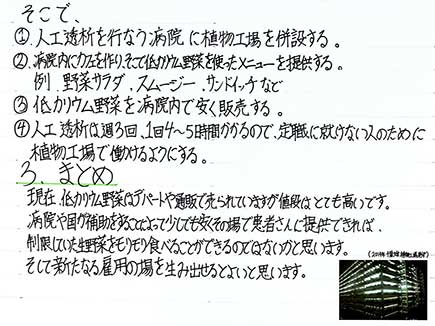 そこで、
① 人工透析を行なう病院に植物工場を併設する。
② 病院内にカフェを作り、そこで低カリウム野菜を使ったメニューを提供する。
例．野菜サラダ、スムージー、サンドイッチなど
③ 低カリウム野菜を病院内で安く販売する。
④ 人工透析は週3回、1回4～5時間かかるので、定職に就けない人のために
植物工場で働けるようにする。
3、まとめ
現在、低カリウム野菜はデパートや通販で売られていますが値段はとても高いです。
病院や国が補助をすることによって少しでも安くその場で患者さんに提供できれば、
制限していた生野菜をモリモリ食べることができるのではないかと思います。
そして新たなる雇用の場を生み出せるとよいと思います。